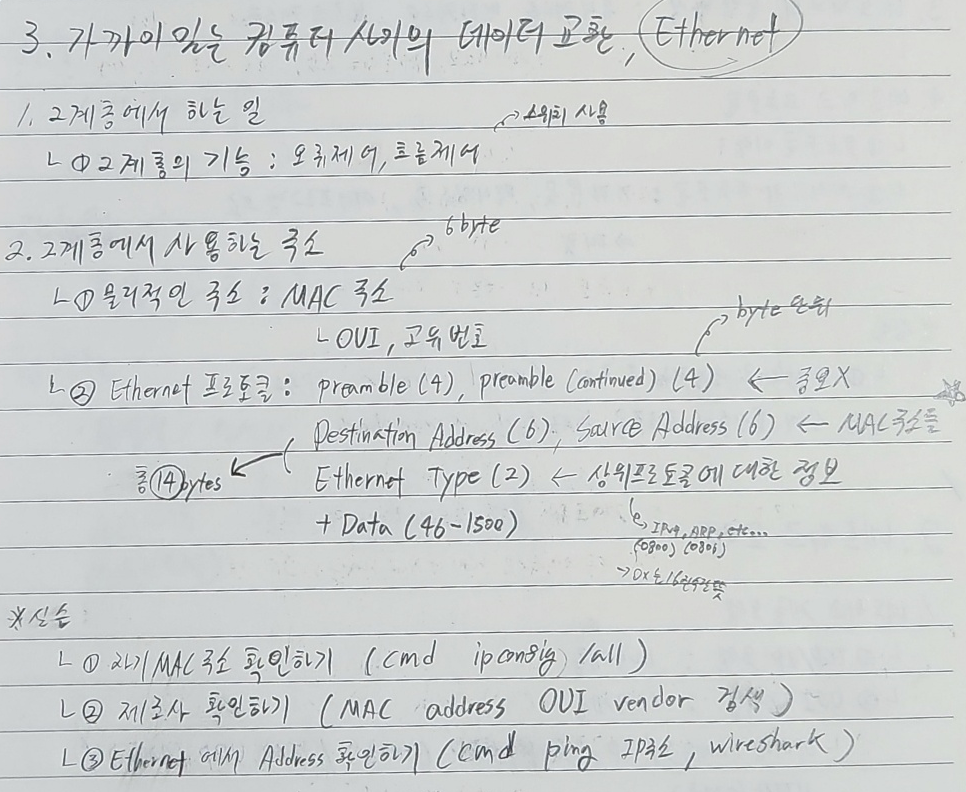 3. 가까이 있는 컴퓨터 사이의 데이터 교환, Ethernet
1. 2계층에서 하는 일
스위치 사용
ㄴ ① 2계층의 기능 : 오류제어, 흐름제어
6 byte
2. 2계층에서 사용하는 주소
ㄴ ① 물리적인 주소 : MAC 주소
ㄴ OUI, 고유번호
byte 단위
ㄴ ② Ethernet 프로토콜 : preamble (4), preamble (continued) (4) ← 중요X
Destination Address (6), Source Address (6) ← MAC주소들
총 14bytes
Ethernet Type (2) ← 상위프로토콜에 대한 정보
+ Data (46-1500)
IPv4, ARP, etc...
(0800) (0806)
→ 0x는 16진수란 뜻
※실습
ㄴ ① 자기 MAC 주소 확인하기 (cmd ipconfig /all)
ㄴ ② 제조사 확인하기 (MAC address OUI vendor 검색)
ㄴ ③ Ethernet 에서 Address 확인하기 (cmd ping IP주소, wireshark)